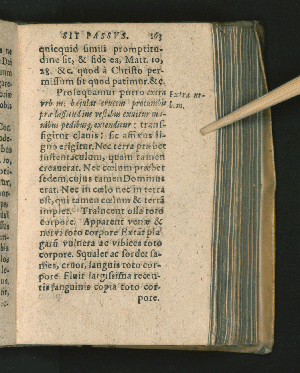 SIT PASSVS. 163
quicquid simili promptitu-
dine sit, & fide ea, Matt. 10,
28. &c. quod à Christo per-
missum sit quod patimur. &c.
Prosequamur porro extra
Extra ur-
bem.
præ lassitudine vestibus exuitur ma-
nibus pedibusq, extenditur: trans-
figitur clauis: sic affixus li-
gno erigitur. Nec terra præbet
sustentaculum, quam tamen
creauerat. Nec cœlum præbet
sedem, cujus tamen Dominus
erat. Nec in cœlo nec in terra
est, qui tamen cœlum & terrā
implet. Tralucent ossa toto
corpore. Apparent venæ &
nervi toto corpore Extāt pla-
garū vulnera ac vibices toto
corpore. Squalet ac sordet sa-
nies, cruor, sanguis toto cor-
pore. Fluit largissima recen-
tis sanguinis copia toto cor-
pore.